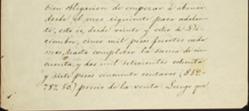 bien Obligacion de empezar á abonar
desde el mes siguiente para adelante
esto es, desde veinte y ocho de Di-
ciembre, cinco mil pesos fuertes
mes, hasta completar la suma de cin-
cuenta y dos mil setecientos ochenta
y siete pesos cincuenta centavos ($ 52.
787.50) precio de la venta. Luego que